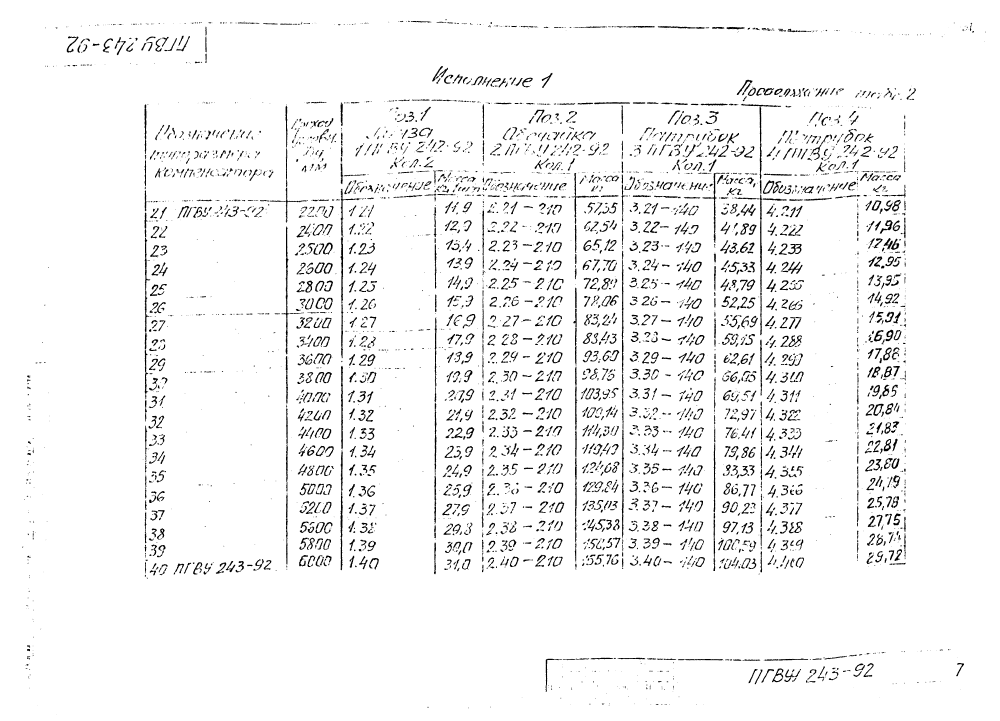 ПГВУ 243-92
Исполнение 1
Продолжение табл. 2
Обозначение типоразмера компенсатора
Проход условн. Dу, мм
Поз.1 Линза 1 ПГВУ 242-92 Кол.2
Поз.2 Обечайка 2 ПГВУ 242-92 Кол.1
Поз.3 Патрубок 3 ПГВУ 242-92 Кол.1
Поз.4 Патрубок 4 ПГВУ 242-92 Кол.1
Обозначение Масса Обозначение Масса кг Обозначение Масса, кг Обозначение Масса кг
21 ПГВУ 243-92 2200 1.21 11,9 2.21-210 57,35 3.21-140 38,44 4.211 10,98
22 2400 1.22 12,9 2.22-210 62,54 3.22-140 41,89 4.222 11,96
23 2500 1.23 13,4 2.23-210 65,12 3.23-140 43,62 4.233 12,46
24 2600 1.24 13,9 2.24-210 67,70 3.24-140 45,33 4.244 12,95
25 2800 1.25 14,9 2.25-210 72,89 3.25-140 48,79 4.255 13,95
26 3000 1.26 15,9 2.26-210 78,06 3.26-140 52,25 4.266 14,92
27 3200 1.27 16,9 2.27-210 83,24 3.27-140 55,69 4.277 15,91
28 3400 1.28 17,9 2.28-210 88,43 3.28-140 59,15 4.288 16,90
29 3600 1.29 18,9 2.29-210 93,60 3.29-140 62,61 4.299 17,88
30 3800 1.30 19,9 2.30-210 98,76 3.30-140 66,05 4.300 18,87
31 4000 1.31 20,9 2.31-210 103,95 3.31-140 69,51 4.311 19,85
32 4200 1.32 21,9 2.32-210 109,14 3.32-140 72,97 4.322 20,84
33 4400 1.33 22,9 2.33-210 114,30 3.33-140 76,41 4.333 21,83
34 4600 1.34 23,9 2.34-210 119,49 3.34-140 79,86 4.344 22,81
35 4800 1.35 24,9 2.35-210 124,68 3.35-140 83,33 4.355 23,80
36 5000 1.36 25,9 2.36-210 129,84 3.36-140 86,77 4.366 24,79
37 5200 1.37 27,9 2.37-210 135,03 3.37-140 90,23 4.377 25,78
38 5600 1.38 29,8 2.38-210 145,38 3.38-140 97,13 4.388 27,75
39 5800 1.39 30,0 2.39-210 150,57 3.39-140 100,59 4.399 28,74
40 ПГВУ 243-92 6000 1.40 31,0 2.40-210 155,76 3.40-140 104,03 4.400 29,72
ПГВУ 243-92 7